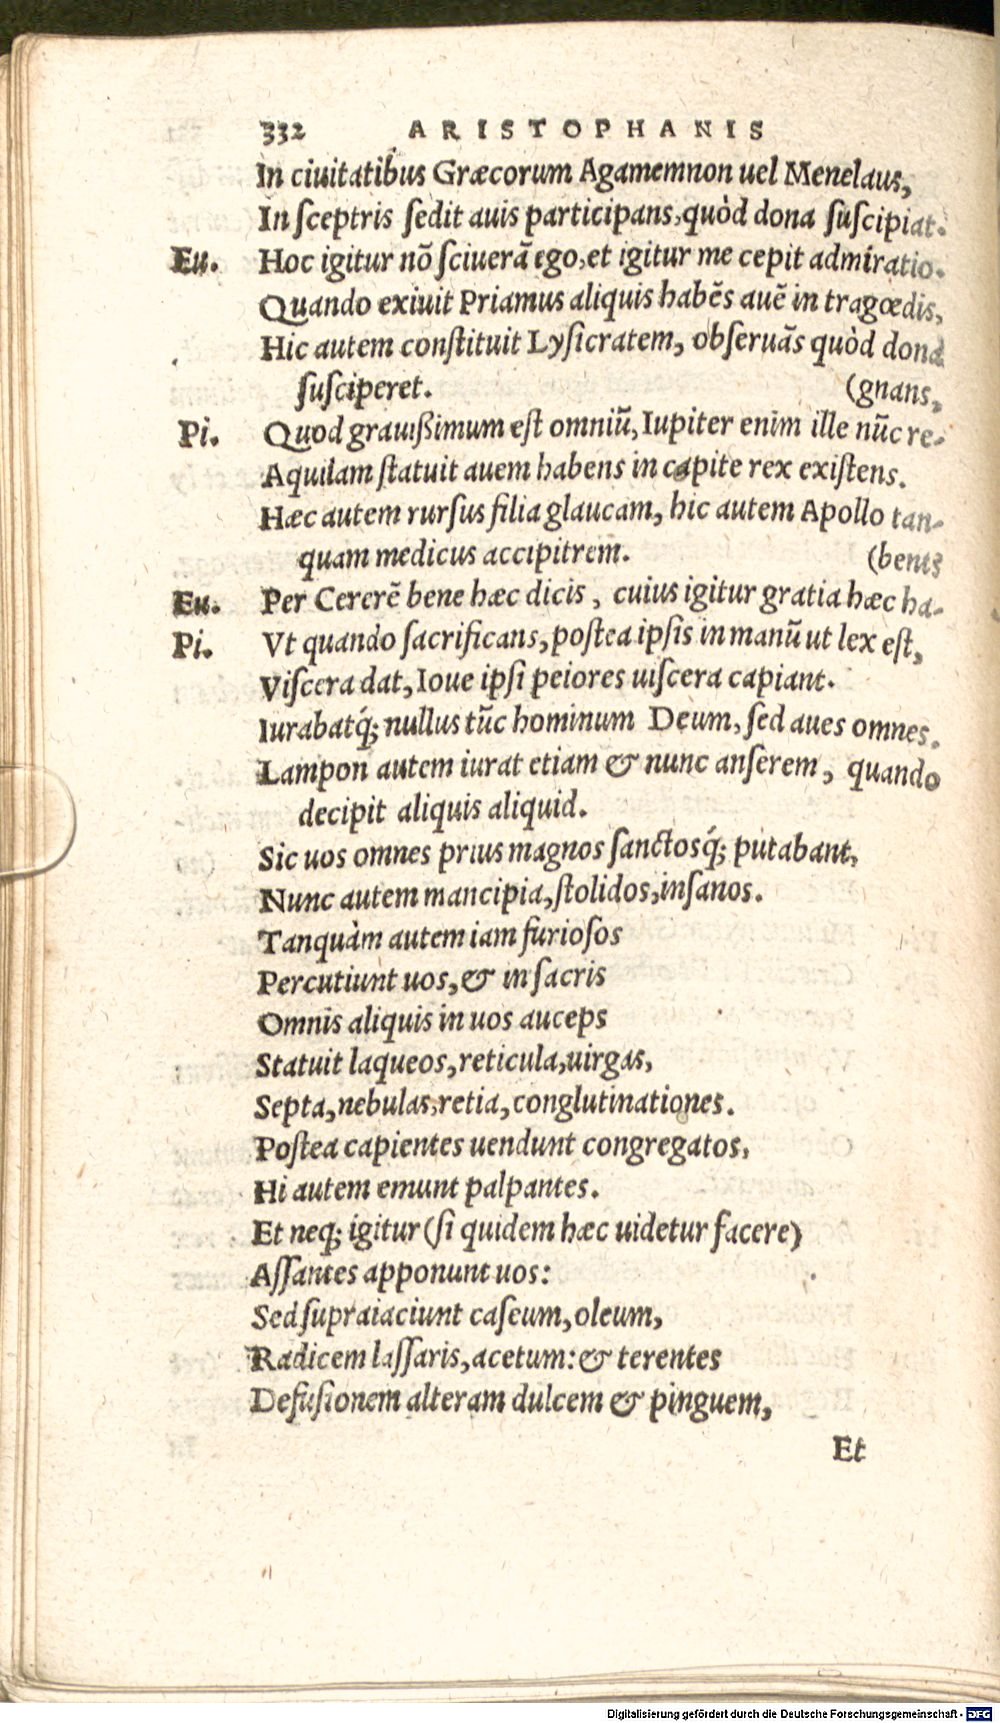 332 ARISTOPHANIS
In ciuitatibus Græcorum Agamemnon uel Menelaus,
In ſceptris ſedit auis participans, quòd dona ſuſcipiat.
Eu. Hoc igitur nō ſciuerā ego, et igitur me cepit admiratio.
Quando exiuit Priamus aliquis habēs auē in tragœdis,
Hic autem conſtituit Lyſicratem, obſeruās quòd dona
ſuſciperet. (gnans,
Pi. Quod grauißimum eſt omniū, Iupiter enim ille nūc re-
Aquilam ſtatuit auem habens in capite rex exiſtens.
Hæc autem rurſus filia glaucam, hic autem Apollo tan-
quam medicus accipitrem. (bents
Eu. Per Cererē bene hæc dicis, cuius igitur gratia hæc ha-
Pi. Vt quando ſacrificans, poſtea ipſis in manū ut lex eſt,
Viſcera dat, Ioue ipſi peiores uiſcera capiant.
Iurabatq́; nullus tūc hominum Deum, ſed aues omnes.
Lampon autem iurat etiam & nunc anſerem, quando
decipit aliquis aliquid.
Sic uos omnes prius magnos ſanctosq́; putabant,
Nunc autem mancipia, ſtolidos, inſanos.
Tanquàm autem iam furioſos
Percutiunt uos, & in ſacris
Omnis aliquis in uos auceps
Statuit laqueos, reticula, uirgas,
Septa, nebulas, retia, conglutinationes.
Poſtea capientes uendunt congregatos,
Hi autem emunt palpantes.
Et neq; igitur (ſi quidem hæc uidetur facere)
Aſſantes apponunt uos:
Sed ſupraiaciunt caſeum, oleum,
Radicem laſſaris, acetum: & terentes
Defuſionem alteram dulcem & pinguem,
Et
Digitalisierung gefördert durch die Deutsche Forschungsgemeinschaft - DFG